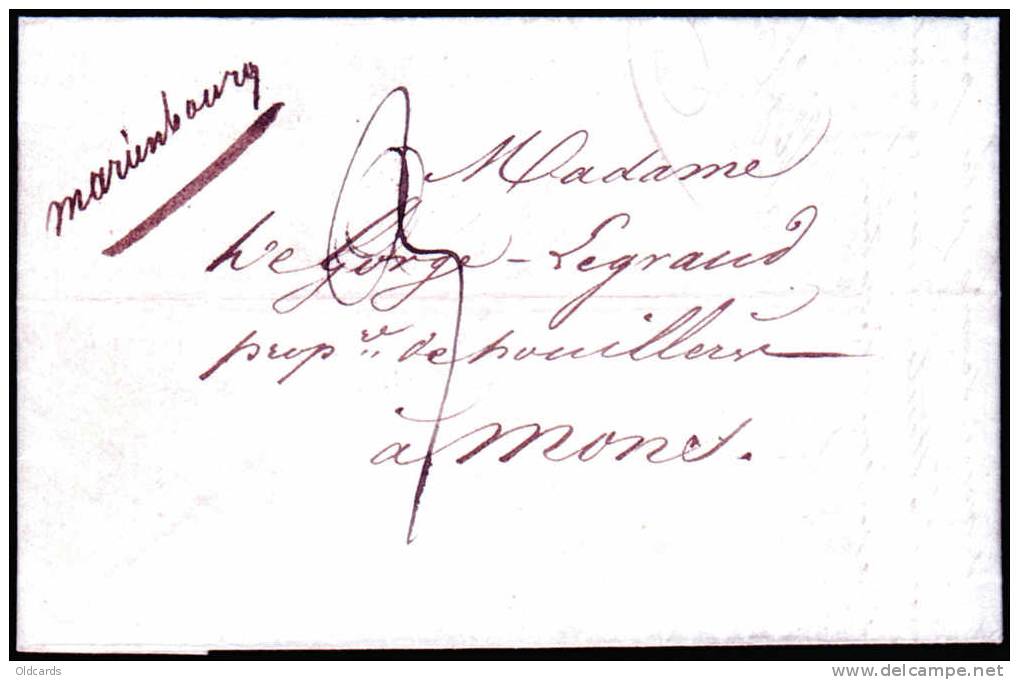 marienbourg
Madame
Ve Gorge - Legrand
propre de houillères
à Mons.
Oldcards
www.delcampe.net